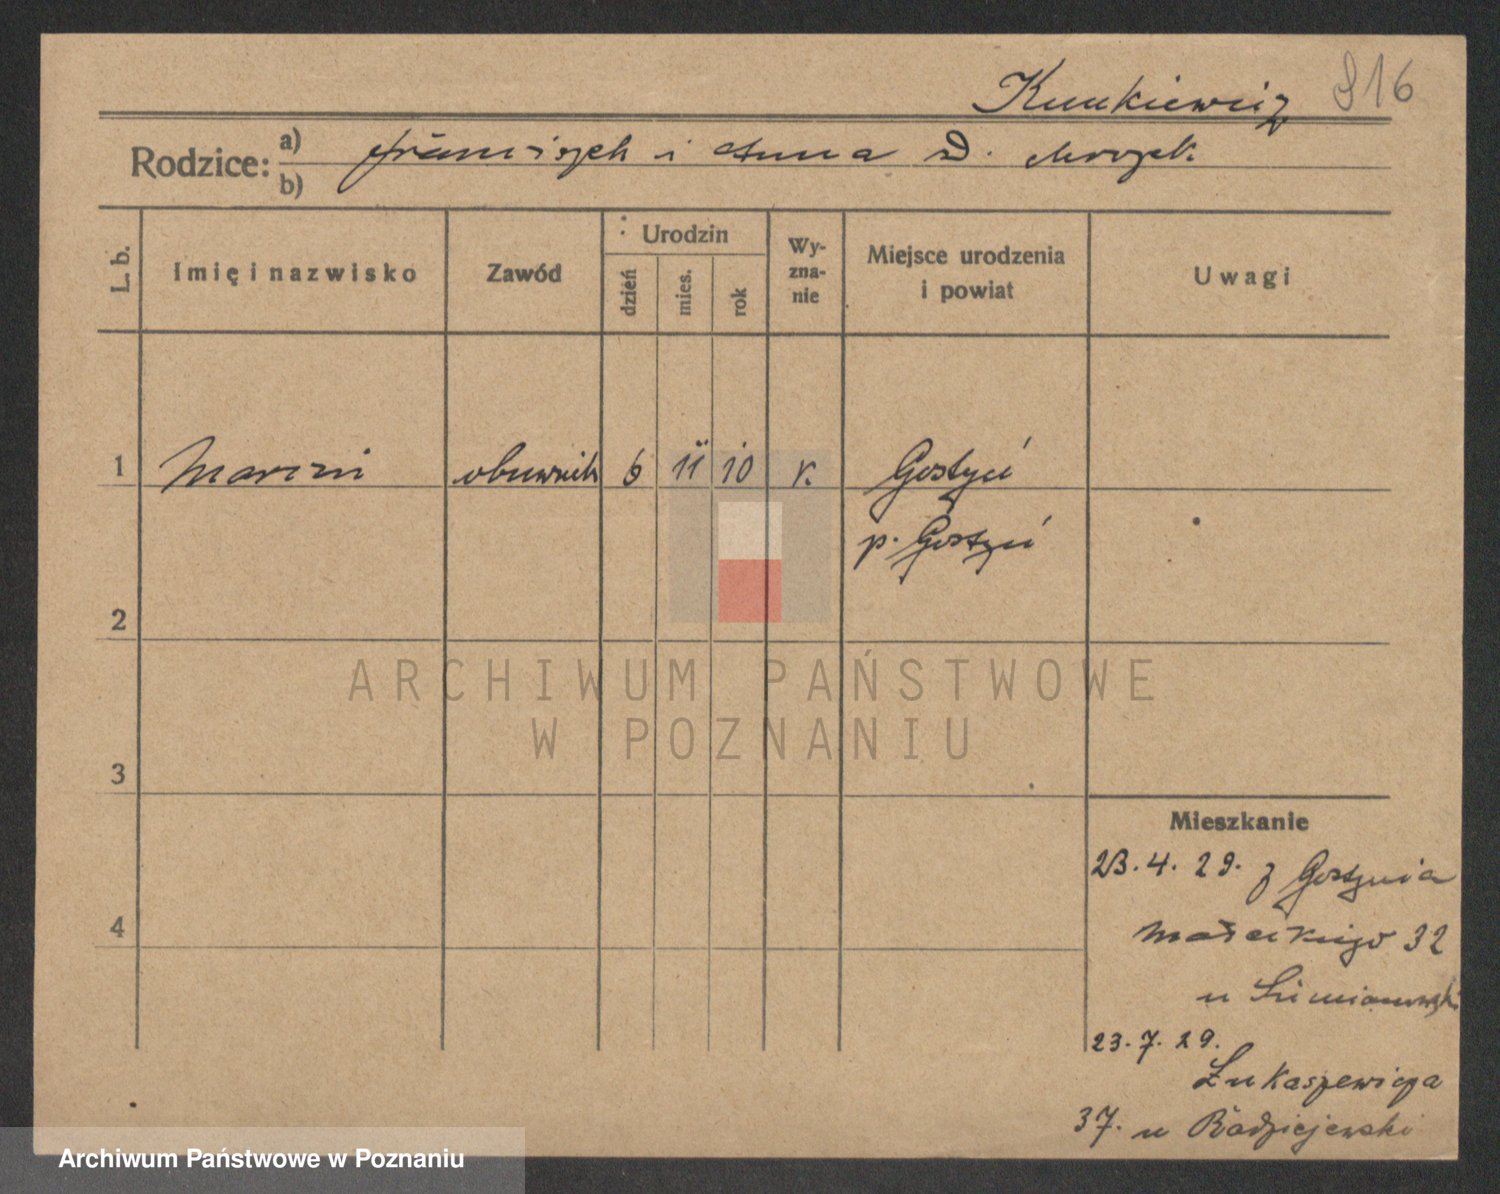 Kunkiewicz 816
Rodzice: a) Franciszek i Anna d. Mroczek
b)
L. b.
Imię i nazwisko
Zawód
Urodzin
dzień
mies.
rok
Wy-
zna-
nie
Miejsce urodzenia
i powiat
Uwagi
1 Marcin obuwnik 6 11 10 k. Gostyń
p. Gostyń
2
ARCHIWUM PAŃSTWOWE
W POZNANIU
3
Mieszkanie
23.4.29. z Gostynia
4
Małeckiego 32
u
23.7.29.
Łukaszewicza
37. u Radziejewski
Archiwum Państwowe w Poznaniu